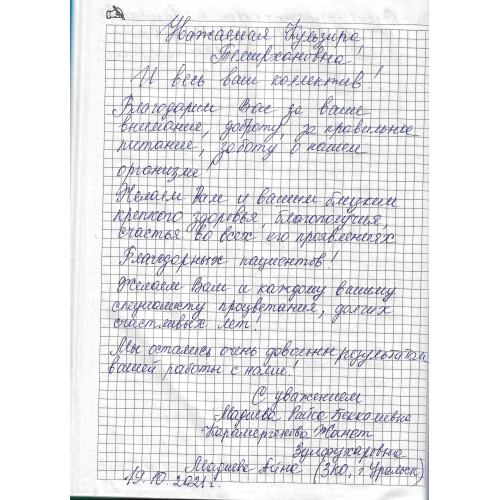 Уважаемая Кульзира
Темирхановна!
И весь ваш коллектив!
Благодарим Вас за ваше
внимание, доброту, за правильное
питание, заботу о нашем
организме!
Желаем Вам и вашим близким
крепкого здоровья, благополучия,
счастья во всех его проявлениях
Благодарных пациентов!
Желаем Вам и каждому вашему
специалисту процветания, долгих
счастливых лет!
Мы остались очень довольны результатом
вашей работы с нами!
С уважением
Мадиева Раиса Беккалиевна
Карамергенова Жанат
Зулфухаровна
Мадиева Айна (ЗКО, г. Уральск)
19.10.2021г.